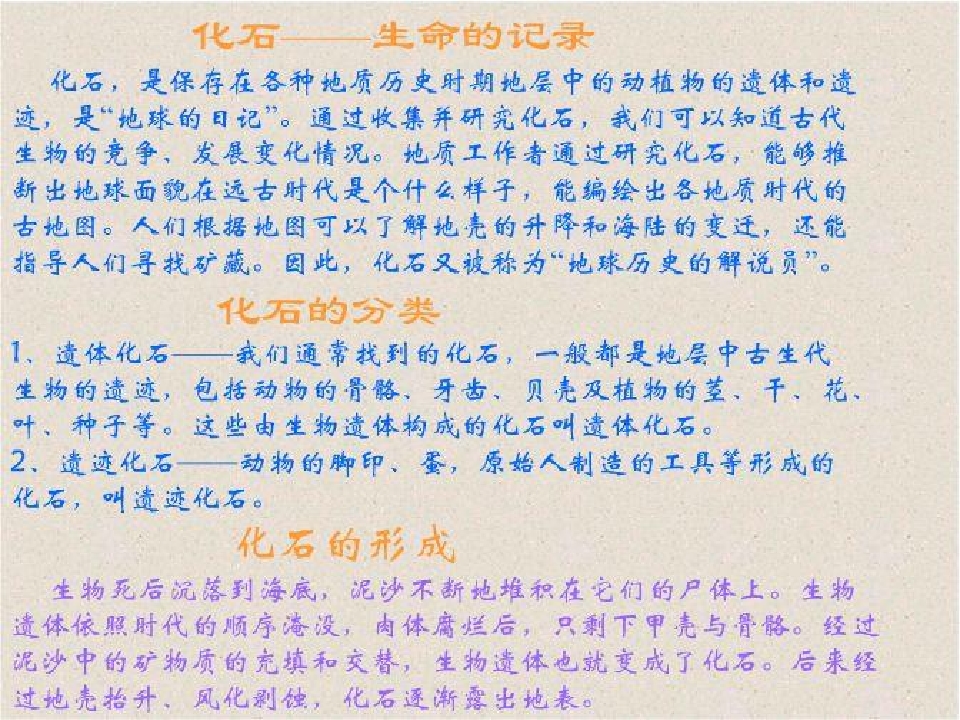 化石——生命的记录
化石，是保存在各种地质历史时期地层中的动植物的遗体和遗
迹，是“地球的日记”。通过收集并研究化石，我们可以知道古代
生物的竞争、发展变化情况。地质工作者通过研究化石，能够推
断出地球面貌在远古时代是个什么样子，能编绘出各地质时代的
古地图。人们根据地图可以了解地壳的升降和海陆的变迁，还能
指导人们寻找矿藏。因此，化石又被称为“地球历史的解说员”。
化石的分类
1、遗体化石——我们通常找到的化石，一般都是地层中古生代
生物的遗迹，包括动物的骨骼、牙齿、贝壳及植物的茎、干、花、
叶、种子等。这些由生物遗体构成的化石叫遗体化石。
2、遗迹化石——动物的脚印、蛋，原始人制造的工具等形成的
化石，叫遗迹化石。
化石的形成
生物死后沉落到海底，泥沙不断地堆积在它们的尸体上。生物
遗体依照时代的顺序淹没，肉体腐烂后，只剩下甲壳与骨骼。经过
泥沙中的矿物质的充填和交替，生物遗体也就变成了化石。后来经
过地壳抬升、风化剥蚀，化石逐渐露出地表。